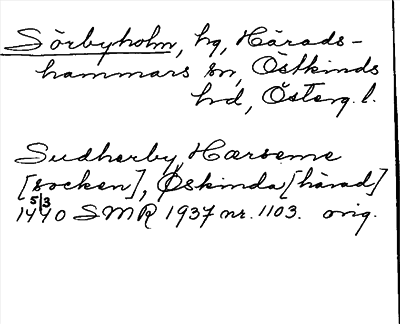 Sörbyholm, hg, Härads-
hammars sn, Östkinds
hd, Österg. l.
Sudherby, Hærseme
[socken], Øskinda [härad]
5/3
1440 SMR 1937 nr. 1103. orig.